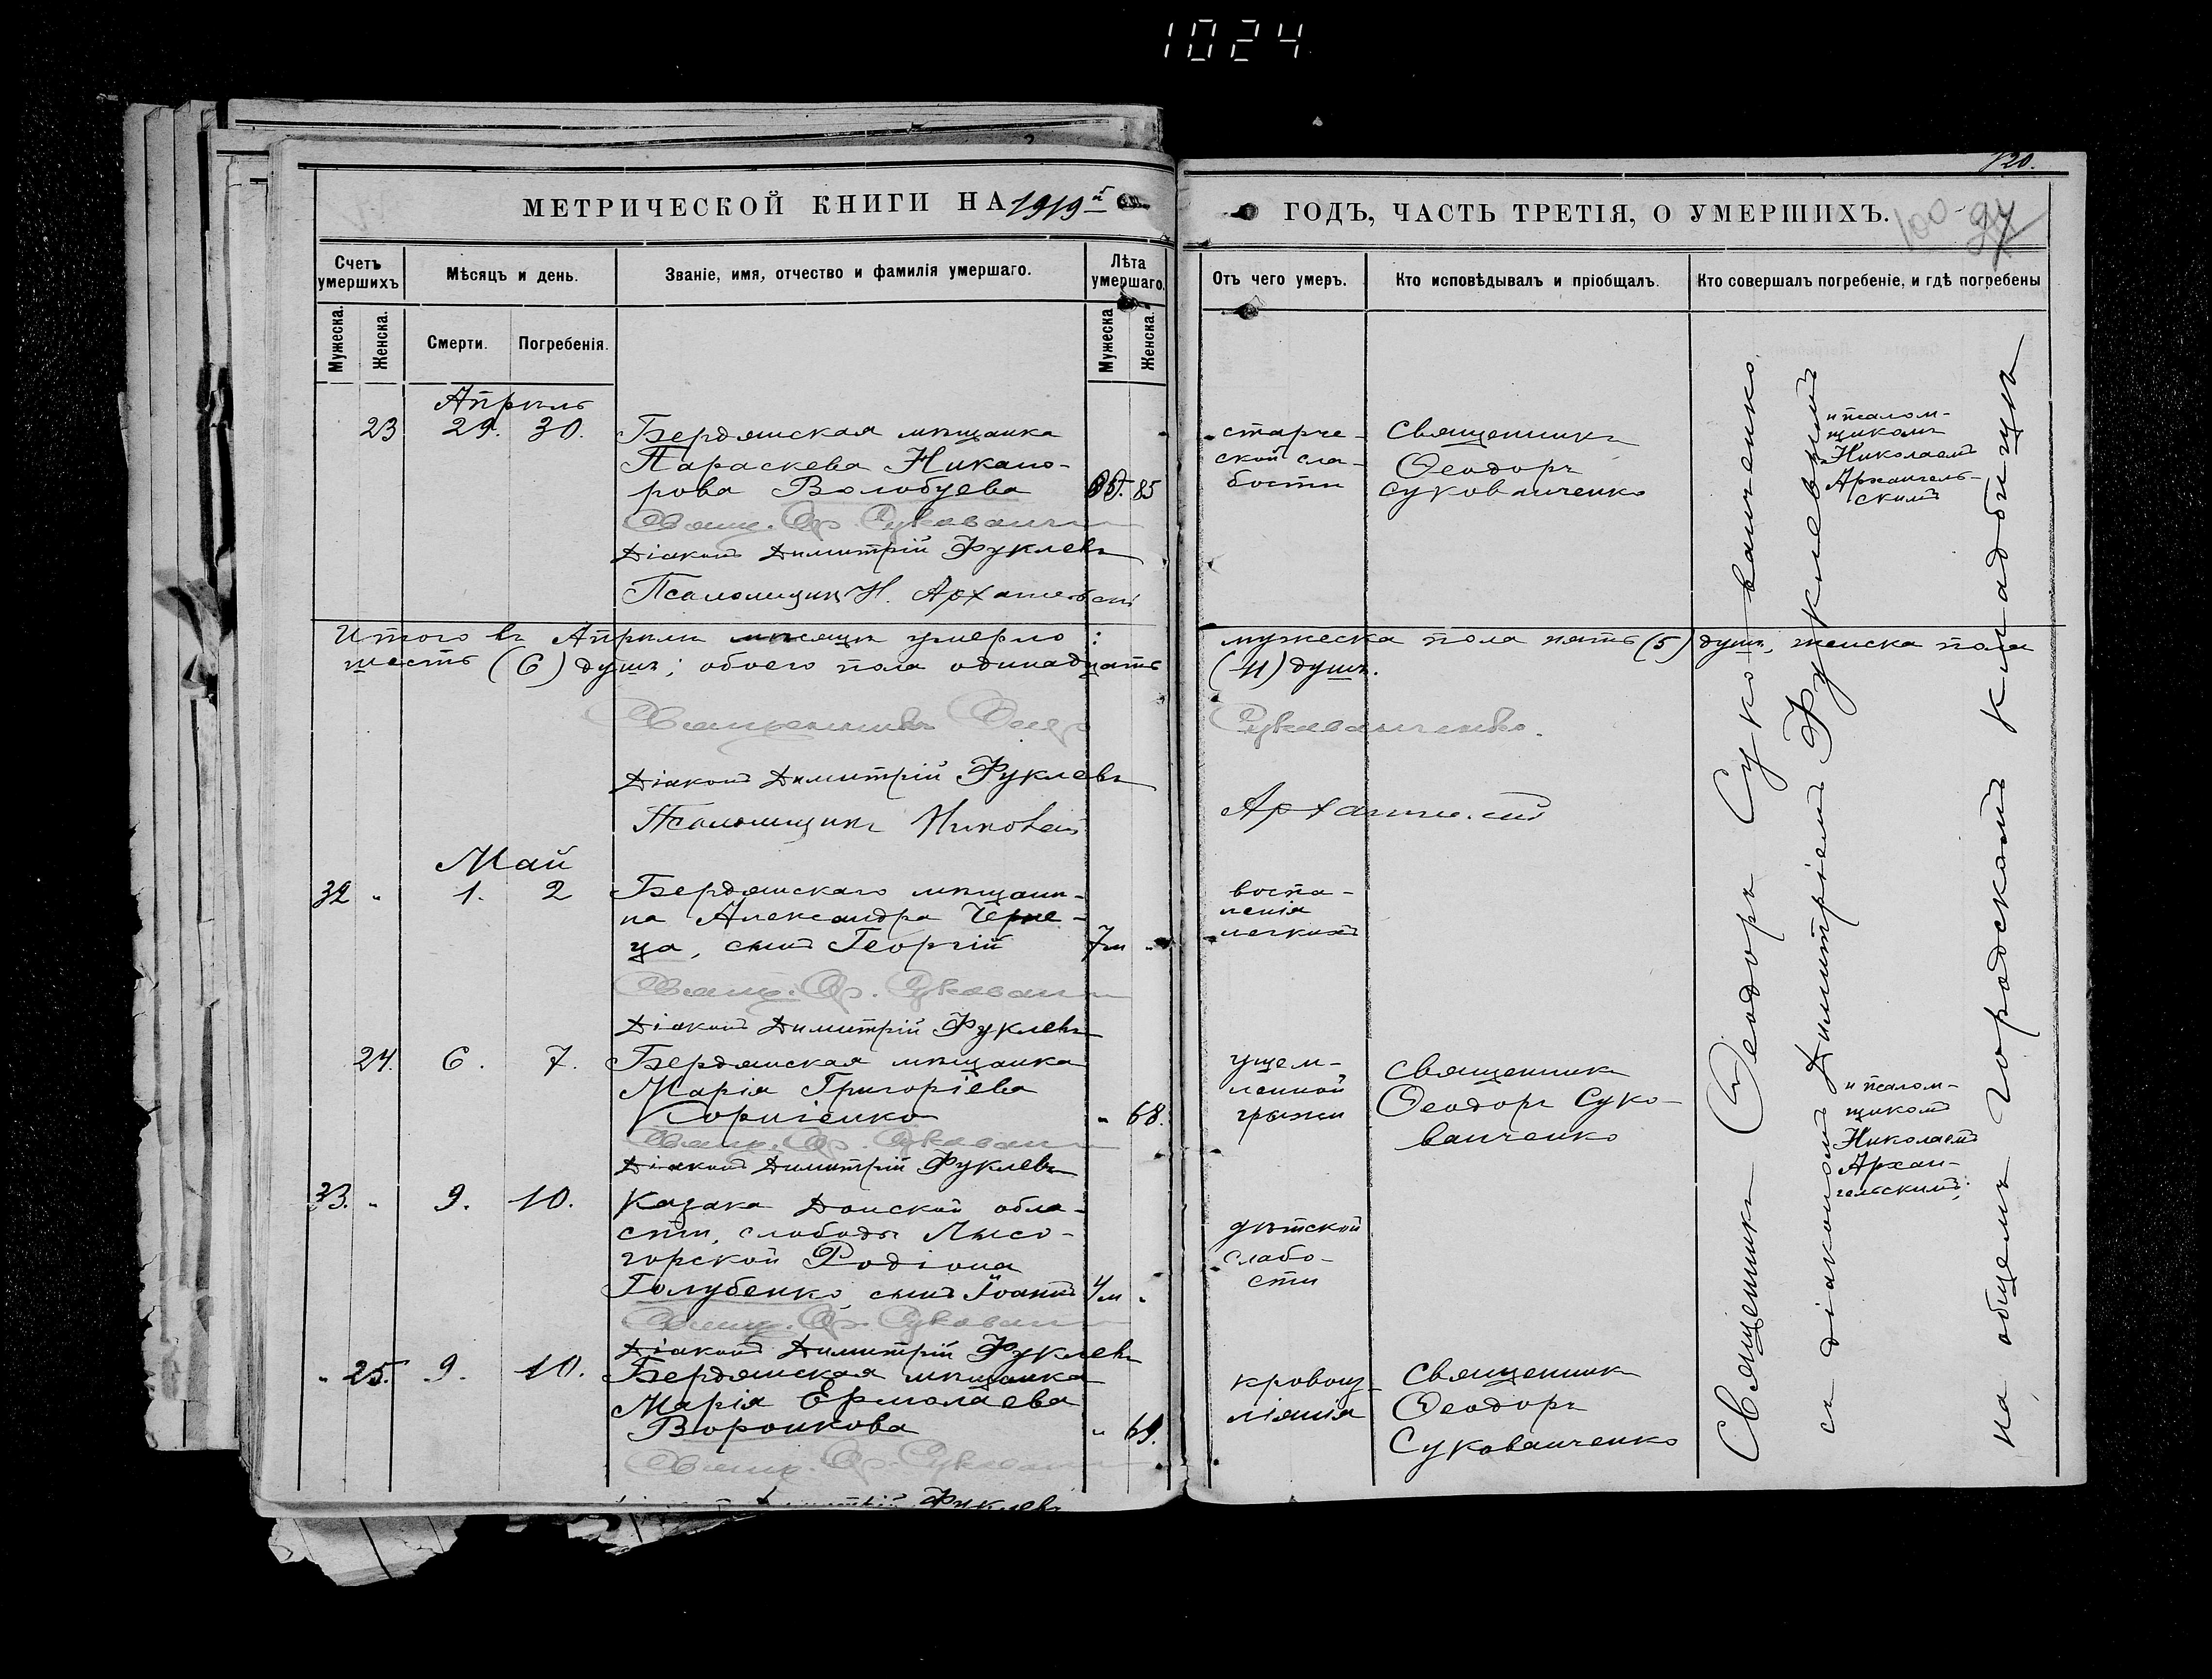 1024
120.
МЕТРИЧЕСКОЙ КНИГИ НА 1919й
ГОДЪ, ЧАСТЬ ТРЕТІЯ, О УМЕРШИХЪ.
100
Счетъ умершихъ
Мѣсяцъ и день.
Званіе, имя, отчество и фамилія умершаго.
Лѣта умершаго.
Отъ чего умеръ.
Кто исповѣдывалъ и пріобщалъ.
Кто совершалъ погребеніе, и гдѣ погребены
Мужеска.
Женска.
Смерти.
Погребенія.
Мужеска
Женска.
Апрѣль
23 29. 30. Бердянская мѣщанка
Параскева Никано-
рова Волобуева 85
Свящ. Ѳ. Сукованч
Діаконъ Димитрій Фуклевъ
Псаломщикъ Н. Архангельскій
старче-
ской сла-
бости
Священникъ
Ѳеодоръ
Сукованченко
и псалом-
щикомъ
Николаемъ
Архангель-
скимъ
Итого въ Апрѣлѣ мѣсяцѣ умерло: мужеска пола пять (5) душъ, женска пола
шесть (6) душъ; обоего пола одинадцать (11) душъ.
Священникъ Ѳеодоръ Сукованченко.
Діаконъ Димитрій Фуклевъ
Псаломщикъ Николай Архангельскій
Май
32 " 1. 2 Бердянскаго мѣщани-
на Александра Черне-
ца, сынъ Георгій 7м "
Свящ. Ѳ. Сукован
Діаконъ Димитрій Фуклевъ
воспа-
ленія
легкихъ
24. 6. 7. Бердянская мѣщанка
Марія Григоріева
" 68.
Свящ. Ѳ. Сукован
Діаконъ Димитрій Фуклевъ
ущем-
ленной
грыжи
Священникъ
Ѳеодоръ Суко-
ванченко
и псалом-
щикомъ
Николаемъ
Архан-
гельскимъ;
33. " 9. 10. Казака Донской обла-
сти, слободы Лысо-
горской Родіона
Голубенко, сынъ Іоаннъ 4м "
Свящ. Ѳ. Сукован
Діаконъ Димитрій Фуклевъ
дѣтской
слабо-
сти
" 25. 9. 10. Бердянская мѣщанка
Марія Ермолаева
Воронкова " 69.
Свящ. Ѳ. Сукован
Фуклевъ
кровоиз-
ліянія
Священникъ
Ѳеодоръ
Сукованченко
Священникъ Ѳеодоръ Сукованченко
съ діакономъ Димитріемъ Фуклевымъ
на общемъ городскомъ кладбищѣ